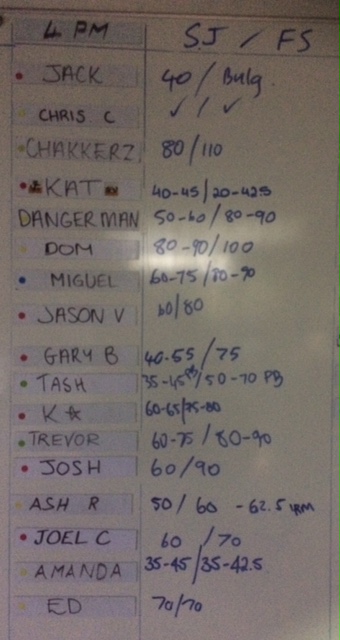 4 PM SJ / FS
JACK 40 / Bulg.
CHRIS C ✓ / ✓
CHAKKERZ 80/110
KAT 40-45/20-42.5
DANGERMAN 50-60/80-90
DOM 80-90/100
MIGUEL 60-75/80-90
JASON V 60/80
GARY B 40-55/75
TASH 35-45 PB/50-70 PB
K 60-65/75-80
TREVOR 60-75/80-90
JOSH 60/90
ASH R 50/60 - 62.5
JOEL C 60/70
AMANDA 35-45/35-42.5
ED 70/70